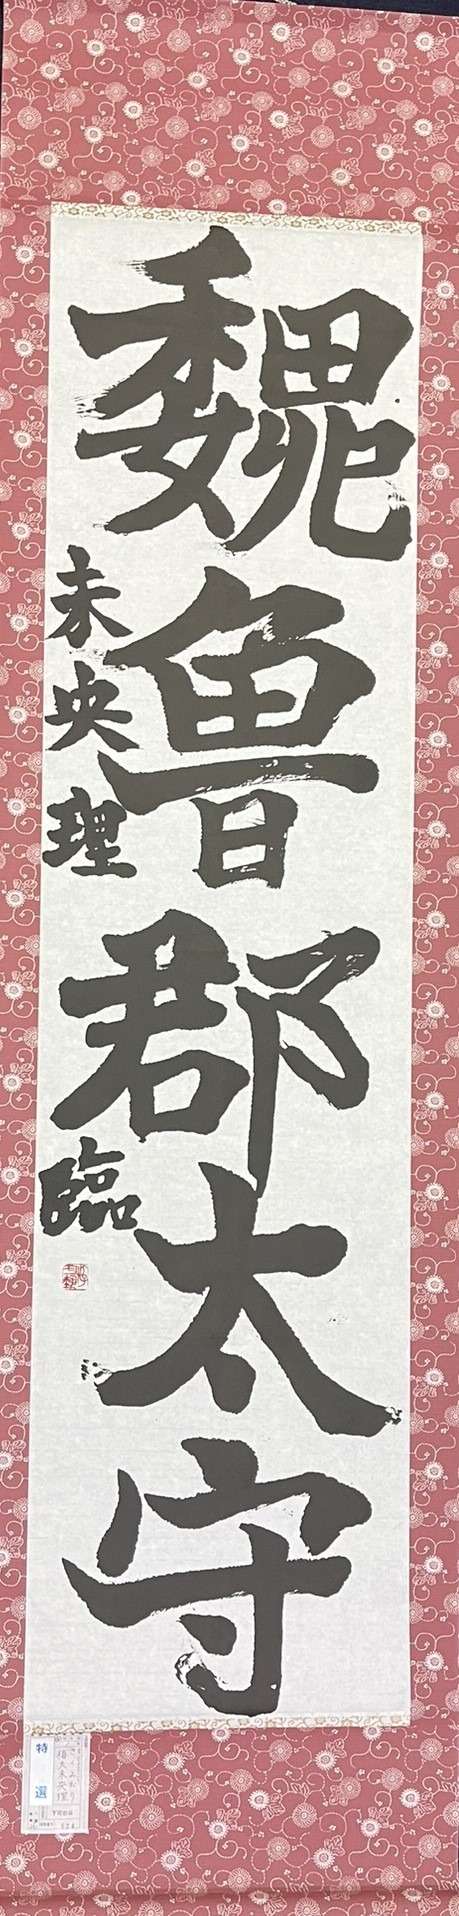 魏魯郡太守
未央理臨
特選